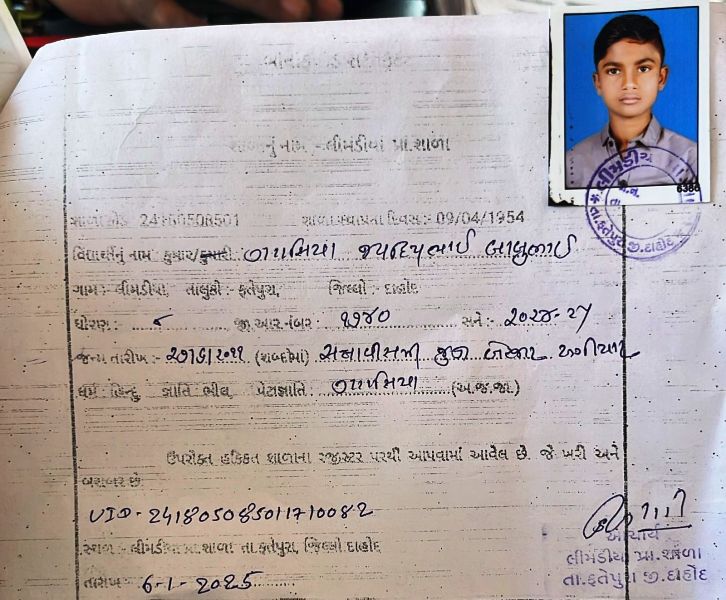 બોનાફાઈડ સર્ટીફિકેટ
શાળાનું નામ :- લીમડીયા પ્રા.શાળા
શાળા કોડ 24180508501 શાળા સ્થાપના દિવસ:- 09/04/1954
વિદ્યાર્થીનું નામ કુમાર/કુમારી જયદિપભાઈ બાબુભાઈ
ગામ:- લીમડીયા, તાલુકો:- ફતેપુરા, જિલ્લો:- દાહોદ
ધોરણ:- ૮ જી.આર.નંબર ૧૭૪૦ સને:- ૨૦૨૪-૨૫
જન્મ તારીખ:- (શબ્દોમાં) સત્તાવીસમી જુન બે હજાર અગીયાર
ધર્મ હિન્દુ જ્ઞાતિ ભીલ, પેટાજ્ઞાતિ (અ.જ.જા.)
ઉપરોક્ત હકિકત શાળાના રજીસ્ટર પરથી આપવામાં આવેલ છે. જે ખરી અને
બરાબર છે.
UID- 241805085011710082
સ્થળ:- લીમડીયા પ્રા.શાળા તા.ફતેપુરા, જિલ્લો દાહોદ
તારીખ 6-1-2025
આચાર્ય
લીમડીયા પ્રા.શાળા
તા.ફતેપુરા જી.દાહોદ
6386
લીમડીયા
તા.ફતેપુરા જી.દાહોદ